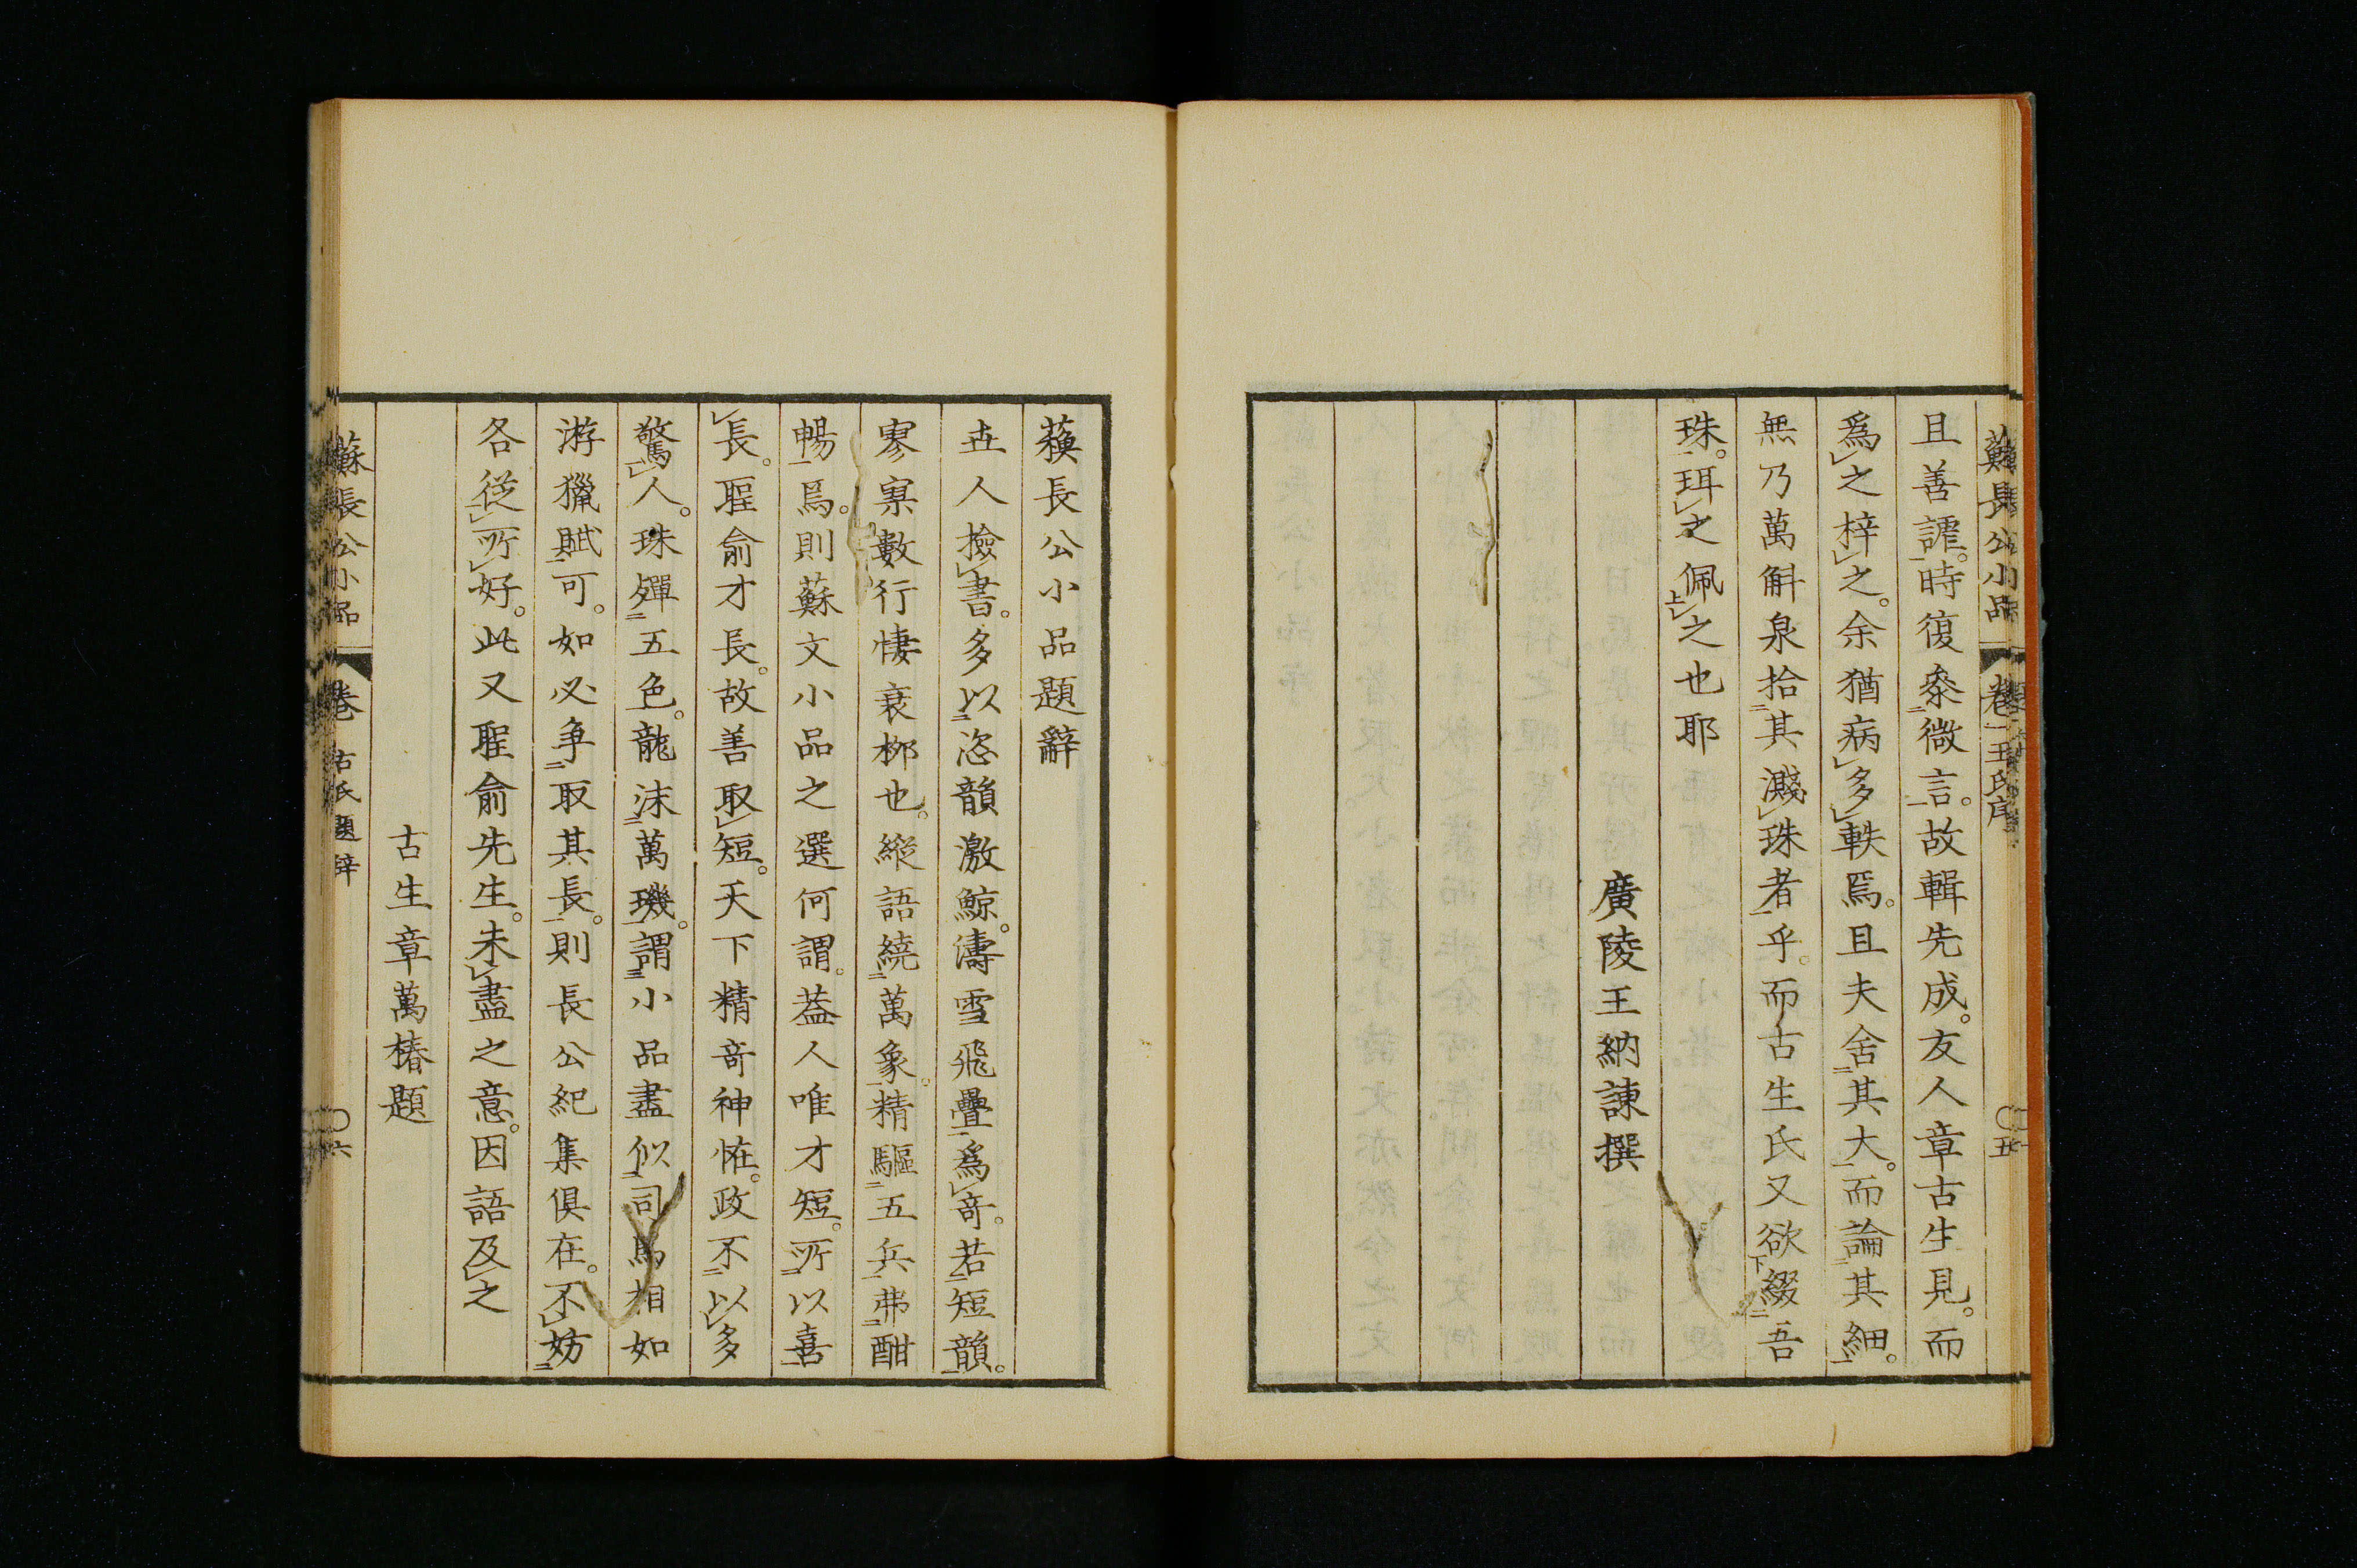 蘇長公小品 卷一 王氏序 〇五
且善謔。時復叅微言。故輯先成。友人章古生見。而
爲之梓之。余猶病多軼焉。且夫舍其大。而論其細。
無乃萬斛泉拾其濺珠者乎。而古生氏又欲綴吾
珠。珥之佩之也耶
廣陵王納諫撰
蘓長公小品題辭
丗人撿書。多以恣韻激鯨。濤雪飛疊爲奇。若短韻。
寥寥數行悽衰栁也。縱語繞萬象。精驅五兵弗酣
暢焉。則蘇文小品之選何謂。葢人唯才短。所以喜
長。聖俞才長。故善取短。天下精竒神恠。政不以多
驚人。珠殫五色。龍沫萬璣。謂小品盡似司馬相如
游獵賦可。如必爭取其長。則長公紀集俱在。不妨
各從所好。此又聖俞先生。未盡之意。因語及之
古生章萬椿題
蘇長公小品 卷一 古氏題辭 〇六